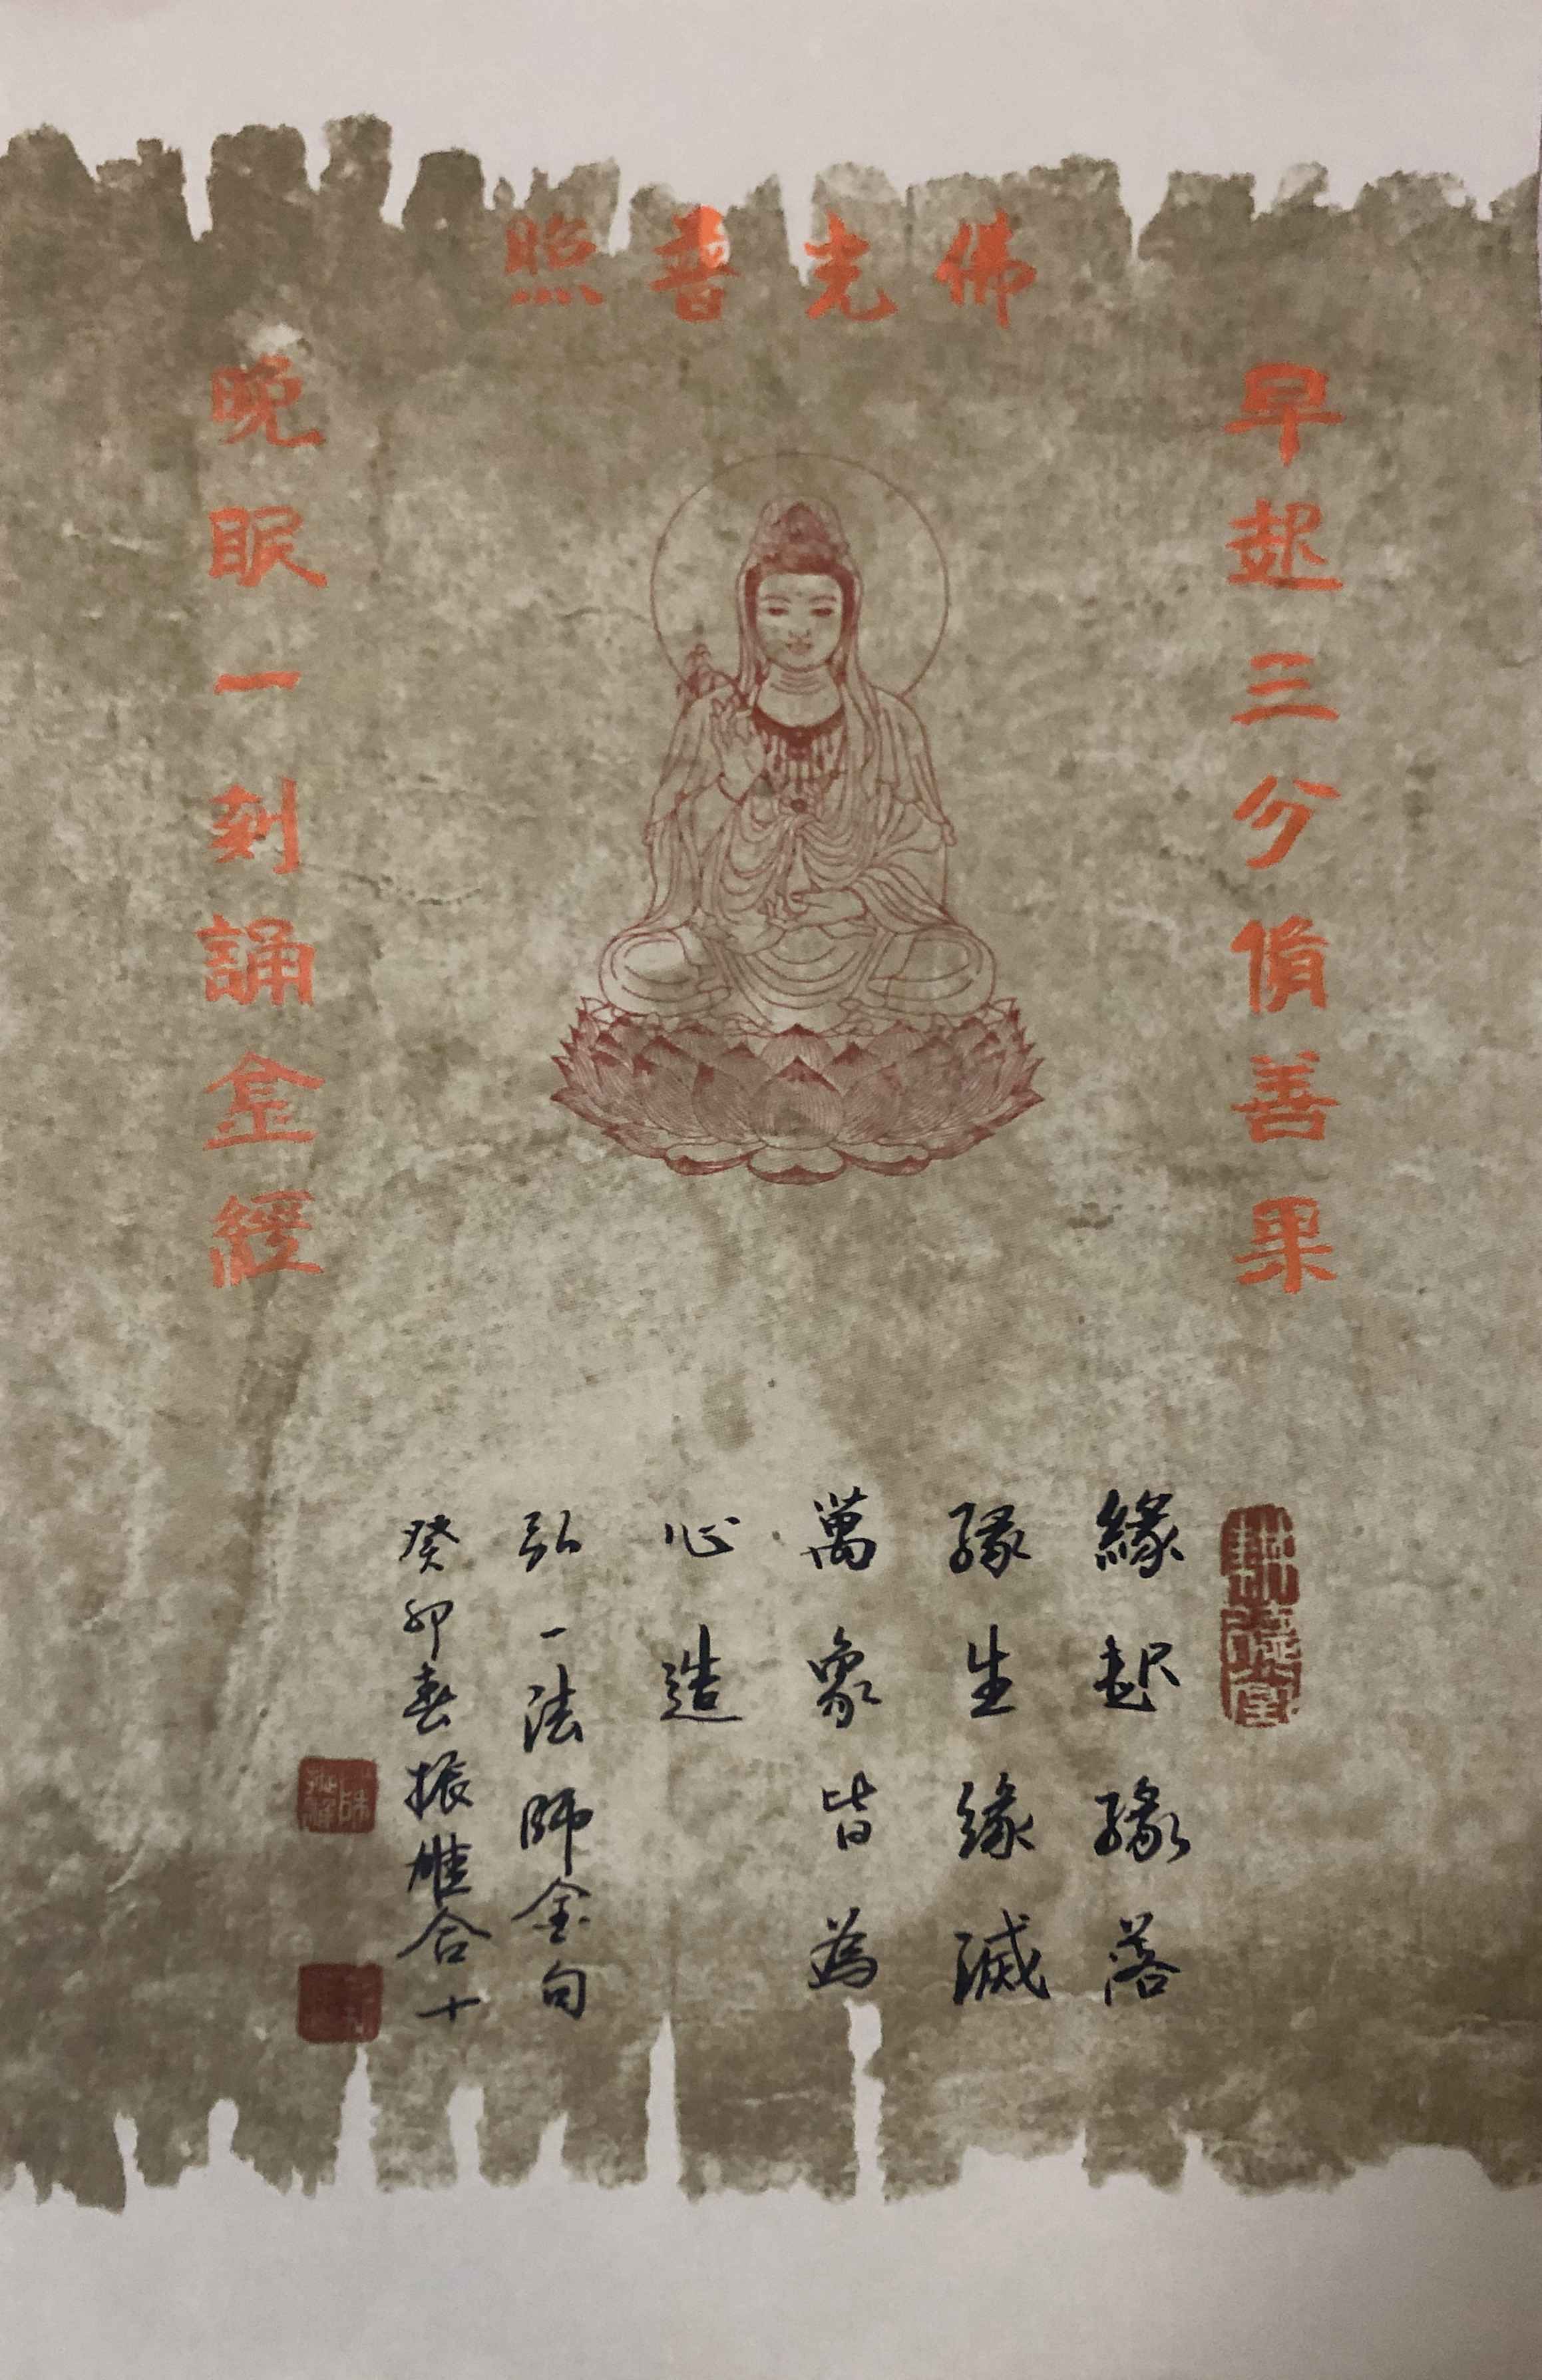 佛光普照
早起三分脩善果
晚眠一刻誦金經
緣起緣落
緣生緣滅
萬象皆為
心造
弘一法師金句
癸卯春振雄合十